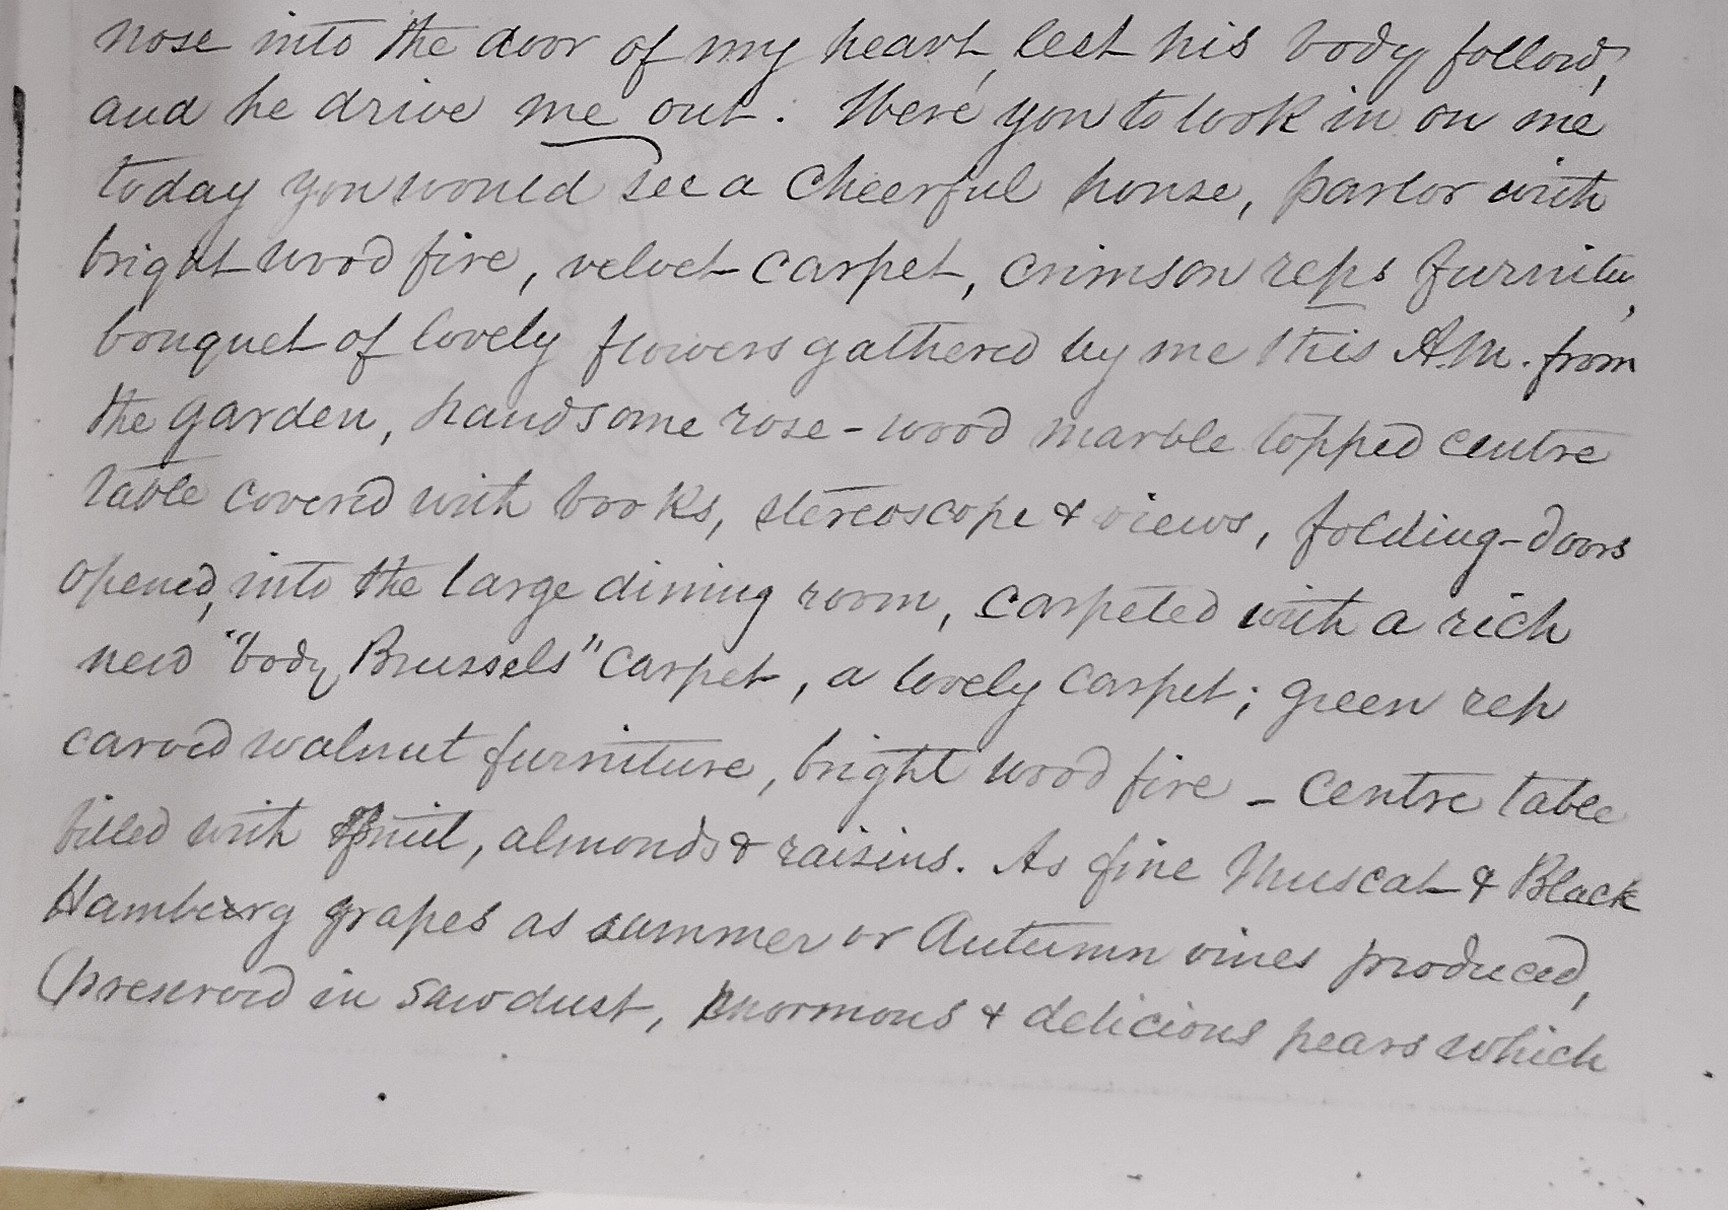 nose into the door of my heart, lest his body follow,
and he drive me out. Were you to look in on me
today you would see a cheerful house, parlor with
bright wood fire, velvet carpet, crimson reps furnitu,
bouquet of lovely flowers gathered by me this A.M. from
the garden, handsome rose-wood marble topped centre
table covered with books, stereoscope & views, folding-doors
opened, into the large dining room, carpeted with a rich
new "body Brussels" carpet, a lovely carpet; green rep
carved walnut furniture, bright wood fire - centre table
filled with fruit, almonds & raisins. As fine Muscat & Black
Hamberg grapes as summer or Autumn vines produced,
(preserved in sawdust, enormous & delicious pears which